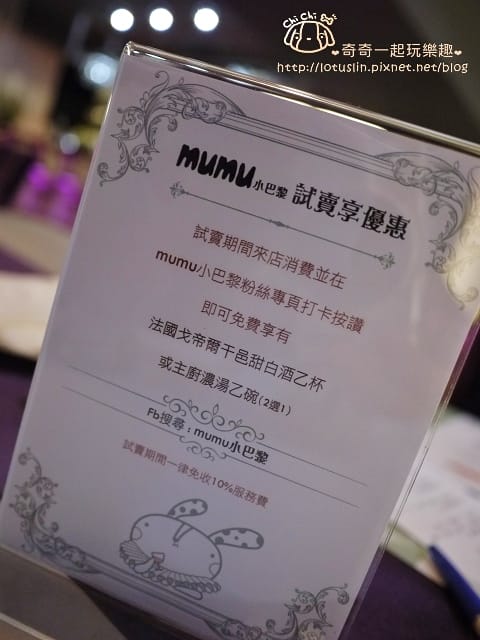 Chi Chi
奇奇一起玩樂趣
http://lotuslin.pixnet.net/blog
mumu小巴黎 試賣享優惠
試賣期間來店消費並在
mumu小巴黎粉絲專頁打卡按讚
即可免費享有
法國戈帝爾干邑甜白酒乙杯
或主廚濃湯乙碗(2選1)
Fb搜尋:mumu小巴黎
試賣期間一律免收10%服務費